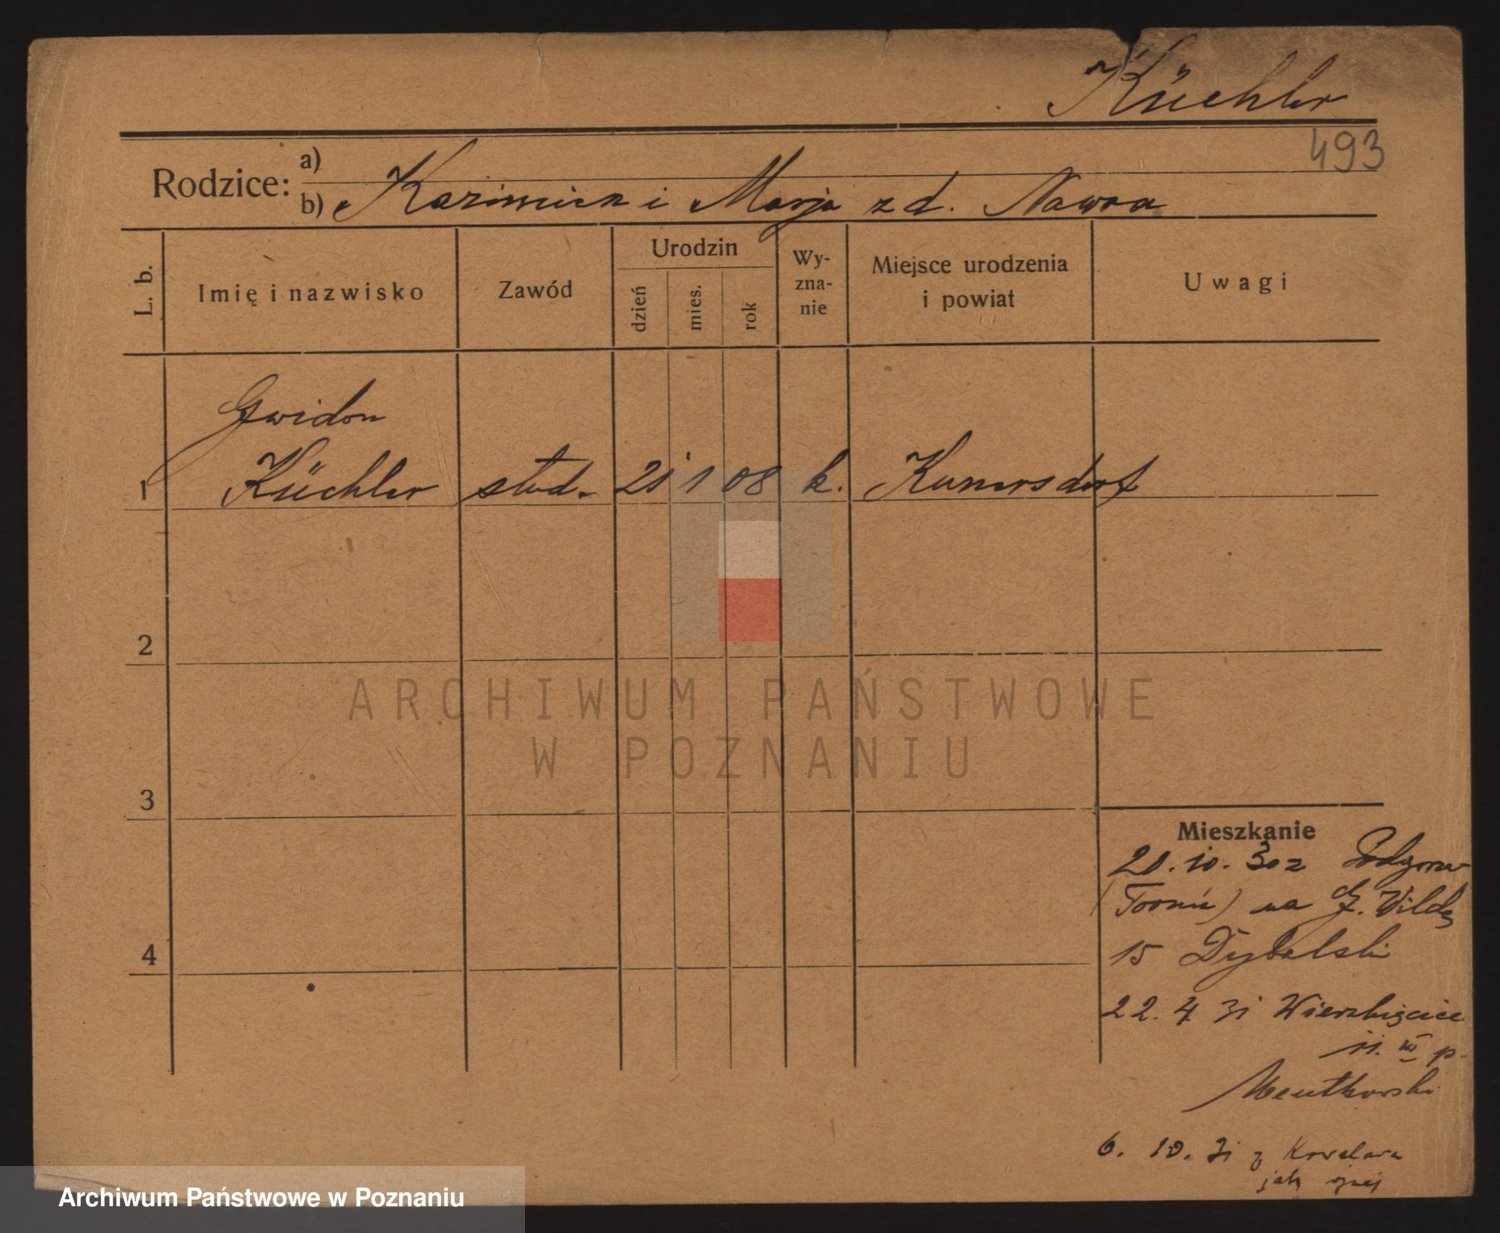 Küchler
493
Rodzice: a)
b) Kazimierz i Marja z d. Nawra
L. b.
Imię i nazwisko
Zawód
Urodzin
dzień
mies.
rok
Wy-
zna-
nie
Miejsce urodzenia
i powiat
Uwagi
Gwidon
1 Küchler stud. 21 1 08 k. Kunersdorf
2
3
4
Mieszkanie
20.10.30 z Podgórza
(Toruń) na G. Wilda
15 Dybalski
22.4.31 Wierzbięcice
11. III p.
6. 10. 31 z
ARCHIWUM PAŃSTWOWE
W POZNANIU
Archiwum Państwowe w Poznaniu